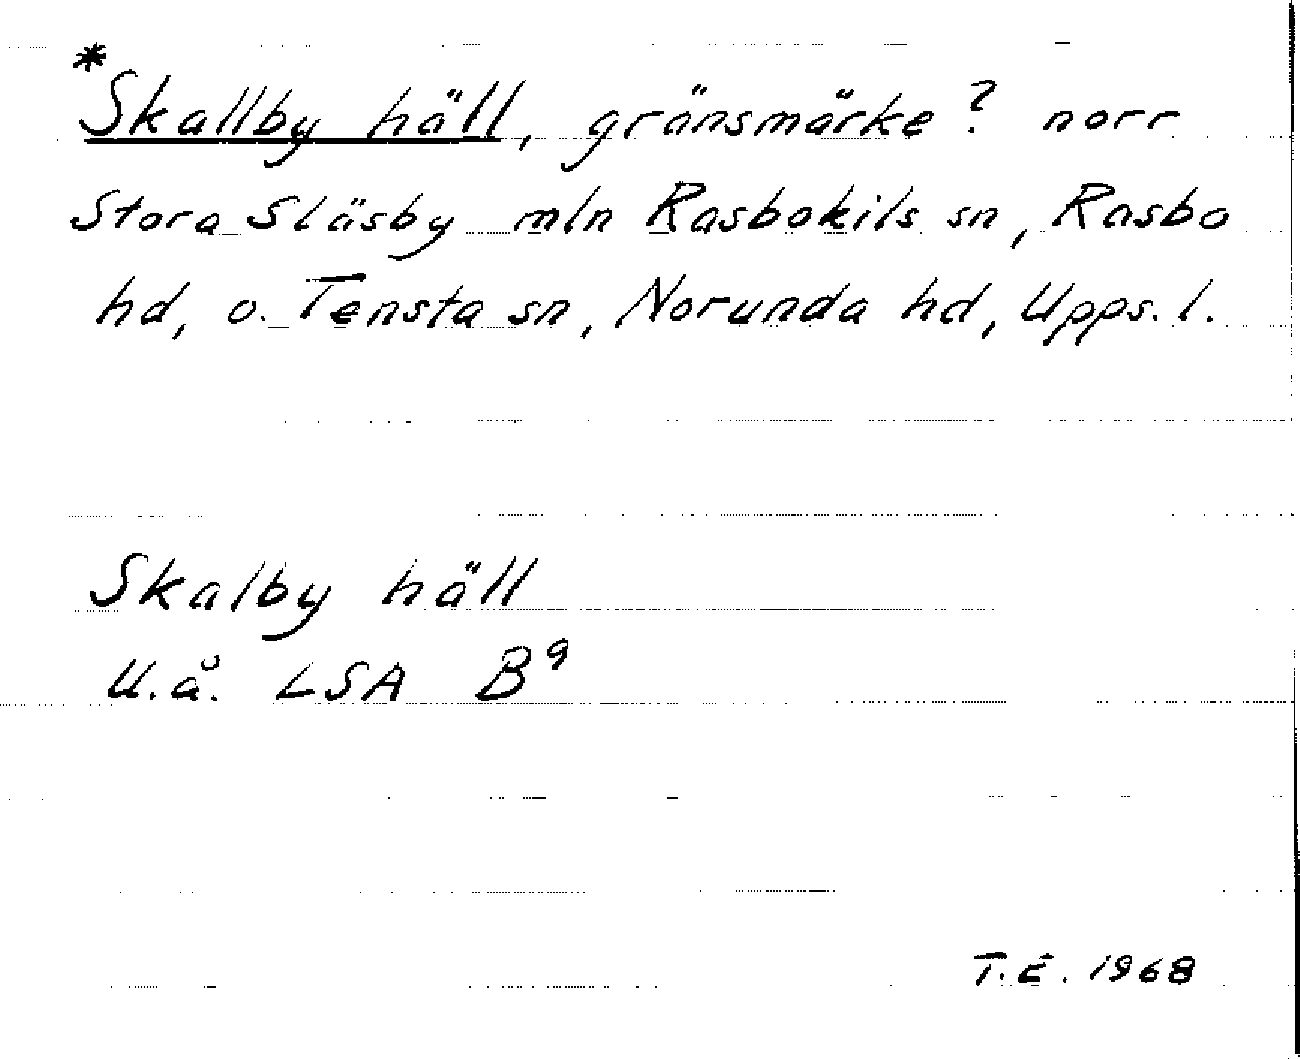 *Skallby häll, gränsmärke? norr
Stora Släsby mln Rasbokils sn, Rasbo
hd, o. Tensta sn, Norunda hd, Upps. l.
Skalby häll
U.å. LSA B⁹
T.E. 1968